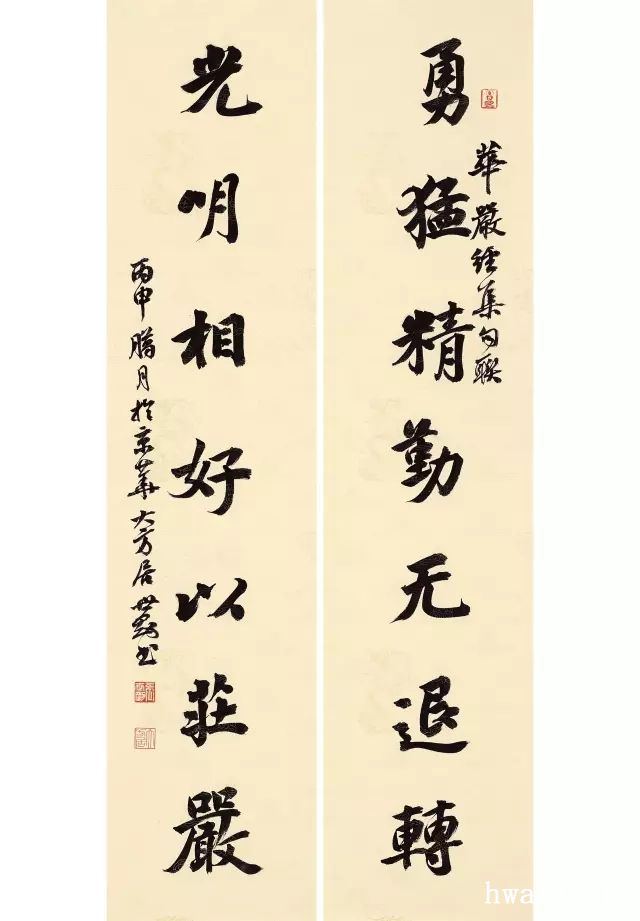 勇猛精勤无退轉
華嚴經集句聯
光明相好以莊嚴
丙申腊月於京華大方居世勛书
hwa